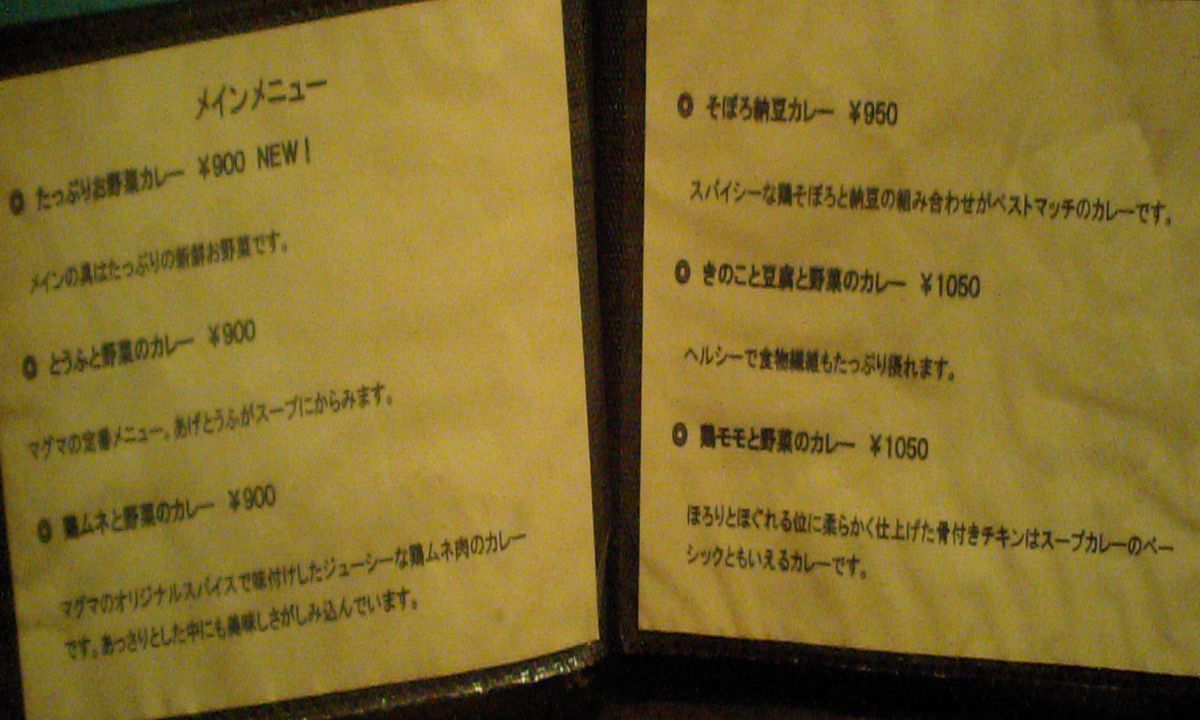 メインメニュー
◎ たっぷりお野菜カレー ￥900 NEW！
メインの具はたっぷりの新鮮お野菜です。
◎ とうふと野菜のカレー ￥900
マグマの定番メニュー。あげとうふがスープにからみます。
◎ 鶏ムネと野菜のカレー ￥900
マグマのオリジナルスパイスで味付けしたジューシーな鶏ムネ肉のカレー
です。あっさりとした中にも美味しさがしみ込んでいます。
◎ そぼろ納豆カレー ￥950
スパイシーな鶏そぼろと納豆の組み合わせがベストマッチのカレーです。
◎ きのこと豆腐と野菜のカレー ￥1050
ヘルシーで食物繊維もたっぷり摂れます。
◎ 鶏モモと野菜のカレー ￥1050
ほろりとほぐれる位に柔らかく仕上げた骨付きチキンはスープカレーのベー
シックともいえるカレーです。